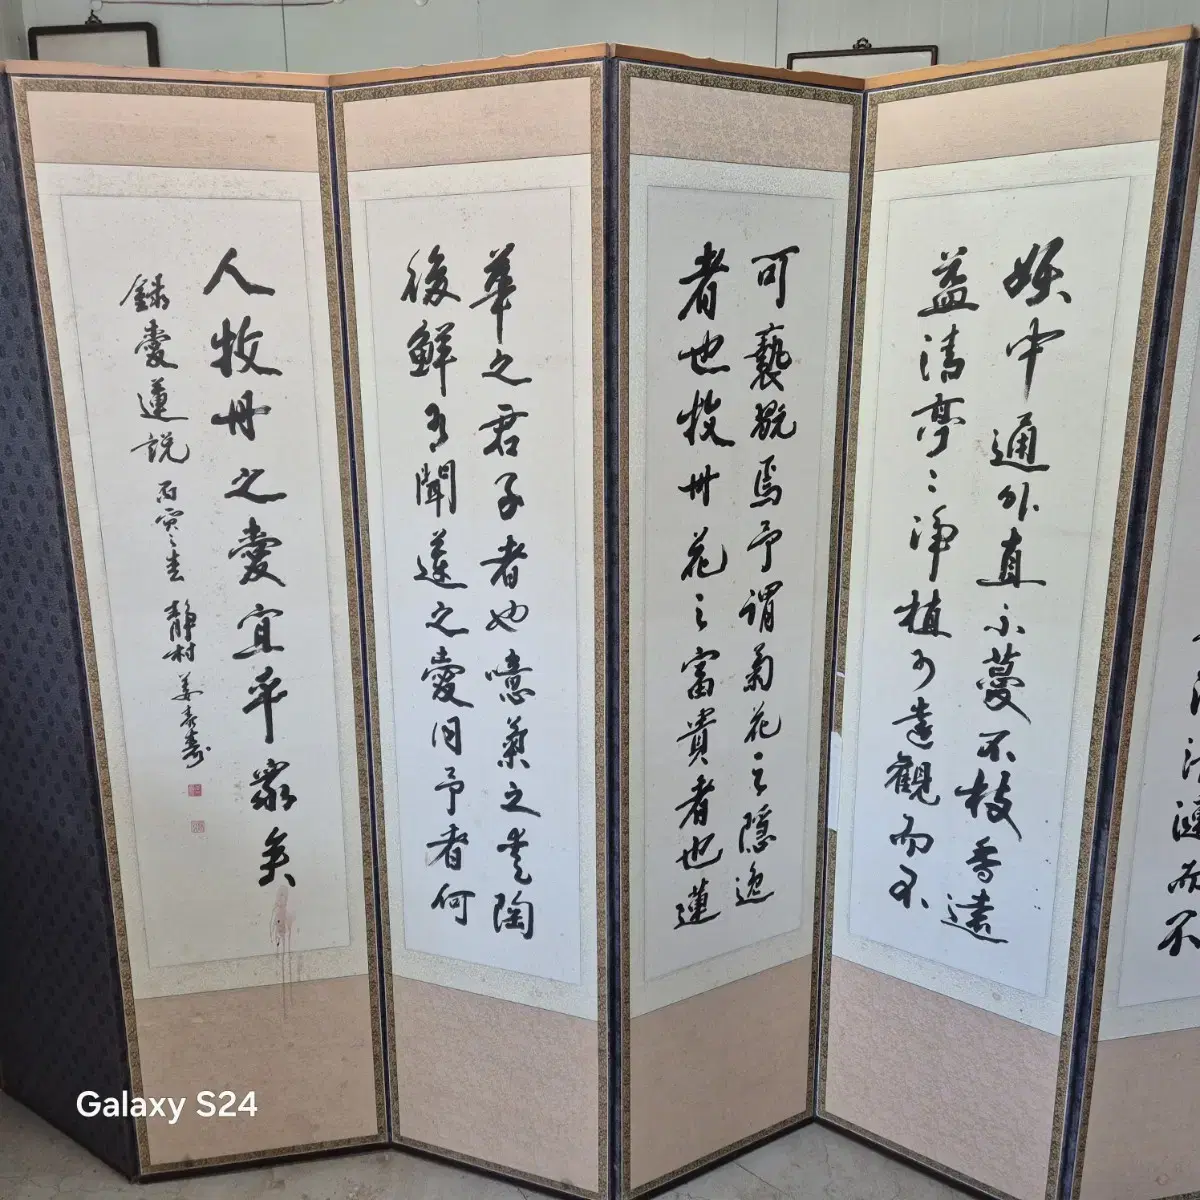 清漣而不
妖中通外直不蔓不枝香遠
益清亭〻淨植可遠觀而不
可褻翫焉予謂菊花之隱逸
者也牧丹花之富貴者也蓮
華之君子者也噫菊之愛陶
後鮮有聞蓮之愛同予者何
人牧丹之愛宜乎衆矣
錄愛蓮說 丙寅之春 靜村 姜
Galaxy S24